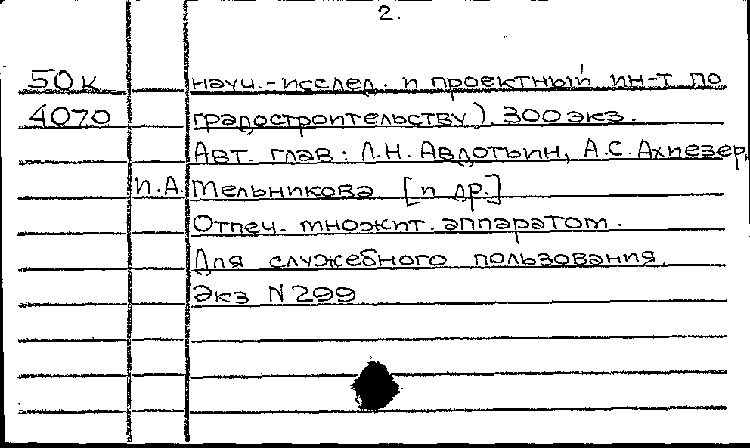 2.
50к науч.-исслед. и проектный ин-т по
4070 градостроительству). 300 экз.
Авт. глав: Л.Н. Авдотьин, А.С. Ахиезер,
И.А. Мельникова [и др.]
Отпеч. множит. аппаратом.
Для служебного пользования.
Экз N 299